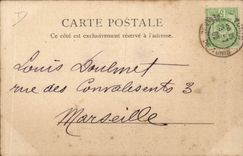 CARTE POSTALE
Ce côté est exclusivement réservé à l'adresse.
Louis
rue des Convalescents 3
Marseille